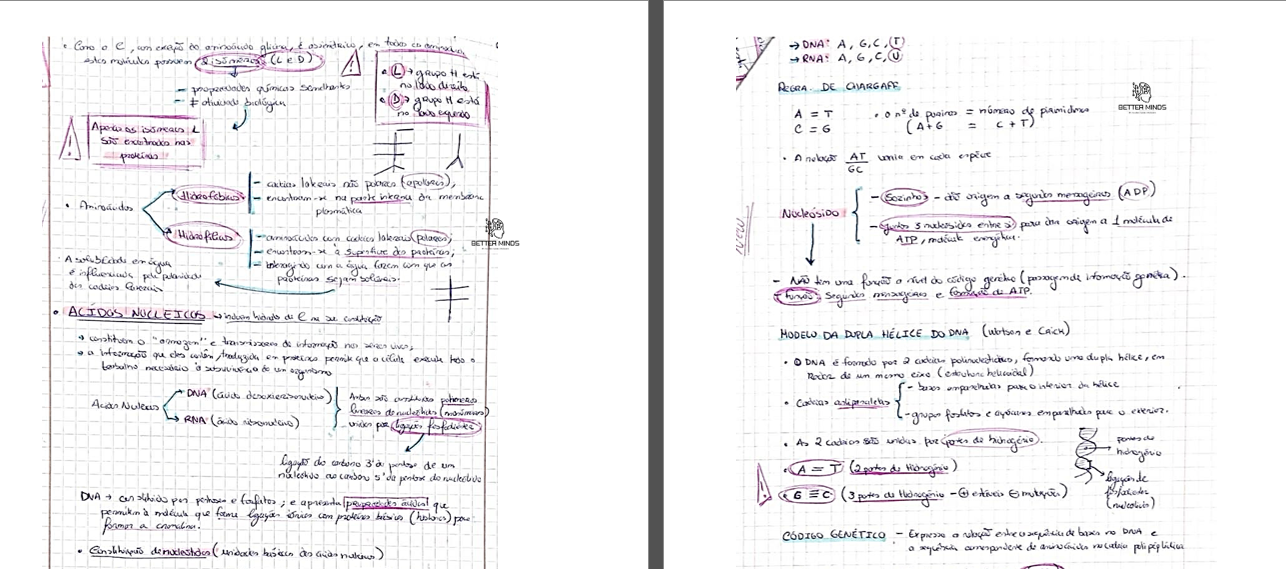 • Como o C, com exceção do aminoácido glicina, é assimétrico, em todos os aminoác.
estas moléculas possuem 2 isómeros (L e D)
- propriedades químicas semelhantes
- ≠ atividade biológica
• L → grupo H está
no lado direito
• D → grupo H está
no lado esquerdo
Apenas os isómeros L
são encontrados nas
proteínas
• Aminoácidos
Hidrofóbicos
- cadeias laterais não polares (apolares),
- encontram-se na parte interna da membrana
plasmática
Hidrofílicos
- aminoácidos com cadeias laterais polares,
- encontram-se à superfície das proteínas,
- interagindo com a água fazem com que as
proteínas sejam solúveis.
BETTER MINDS
• A solubilidade em água
é influenciada pela polaridade
das cadeias laterais
• ACÍDOS NUCLEICOS → hidratos de C na sua constituição
→ constituem o "armazem" e transmissores de informação nos seres vivos,
→ a informação que eles contêm, traduzida em proteínas permite que a célula execute todo o
trabalho necessário à sobrevivência de um organismo
Ácidos Nucleicos
DNA (ácido desoxirribonucleico)
RNA (ácido ribonucleico)
Ambos são constituídos polímeros
lineares de nucleótidos (monómeros)
unidos por ligação fosfodiéster
ligação do carbono 3' da pentose de um
nucleótido ao carbono 5' da pentose do nucleótido
DNA → constituído por pentoses e fosfatos, e apresenta propriedades ácidas que
permitem à molécula que forme ligações iónicas com proteínas básicas (histonas) para
formar a cromatina.
• Constituição de nucleótidos (unidades básicas dos ácidos nucleicos)
→ DNA: A, G, C, T
→ RNA: A, G, C, U
REGRA DE CHARGAFF
A = T
C = G
• o nº de purinas = número de pirimidinas
(A+G = C+T)
BETTER MINDS
• A relação AT/GC varia em cada espécie
Nucleósido
- Sozinhos - dão origem a segundos mensageiros (ADP)
- juntos 3 nucleósidos entre si para dar origem a 1 molécula de
ATP, molécula energética.
- Não tem uma função a nível do código genético (passagem de informação genética).
- Função: Segundos mensageiros e formação de ATP.
MODELO DA DUPLA HÉLICE DO DNA (Watson e Crick)
• O DNA é formado por 2 cadeias polinucleotídicas, formando uma dupla hélice, em
redor de um mesmo eixo (estrutura helicoidal)
• Cadeias antiparalelas
- bases emparelhadas para o interior da hélice
- grupos fosfatos e açúcares emparelhados para o exterior.
• As 2 cadeias são unidas por pontes de hidrogénio.
• A = T (2 pontes de Hidrogénio)
• G ≡ C (3 pontes de Hidrogénio - ⊕ estáveis ⊖ mutações)
pontes de
hidrogénio
ligação de
fosfodiéster
(nucleótidos)
CÓDIGO GENÉTICO - Expressa a relação entre a sequência de bases no DNA e
a sequência correspondente de aminoácidos na cadeia polipeptídica